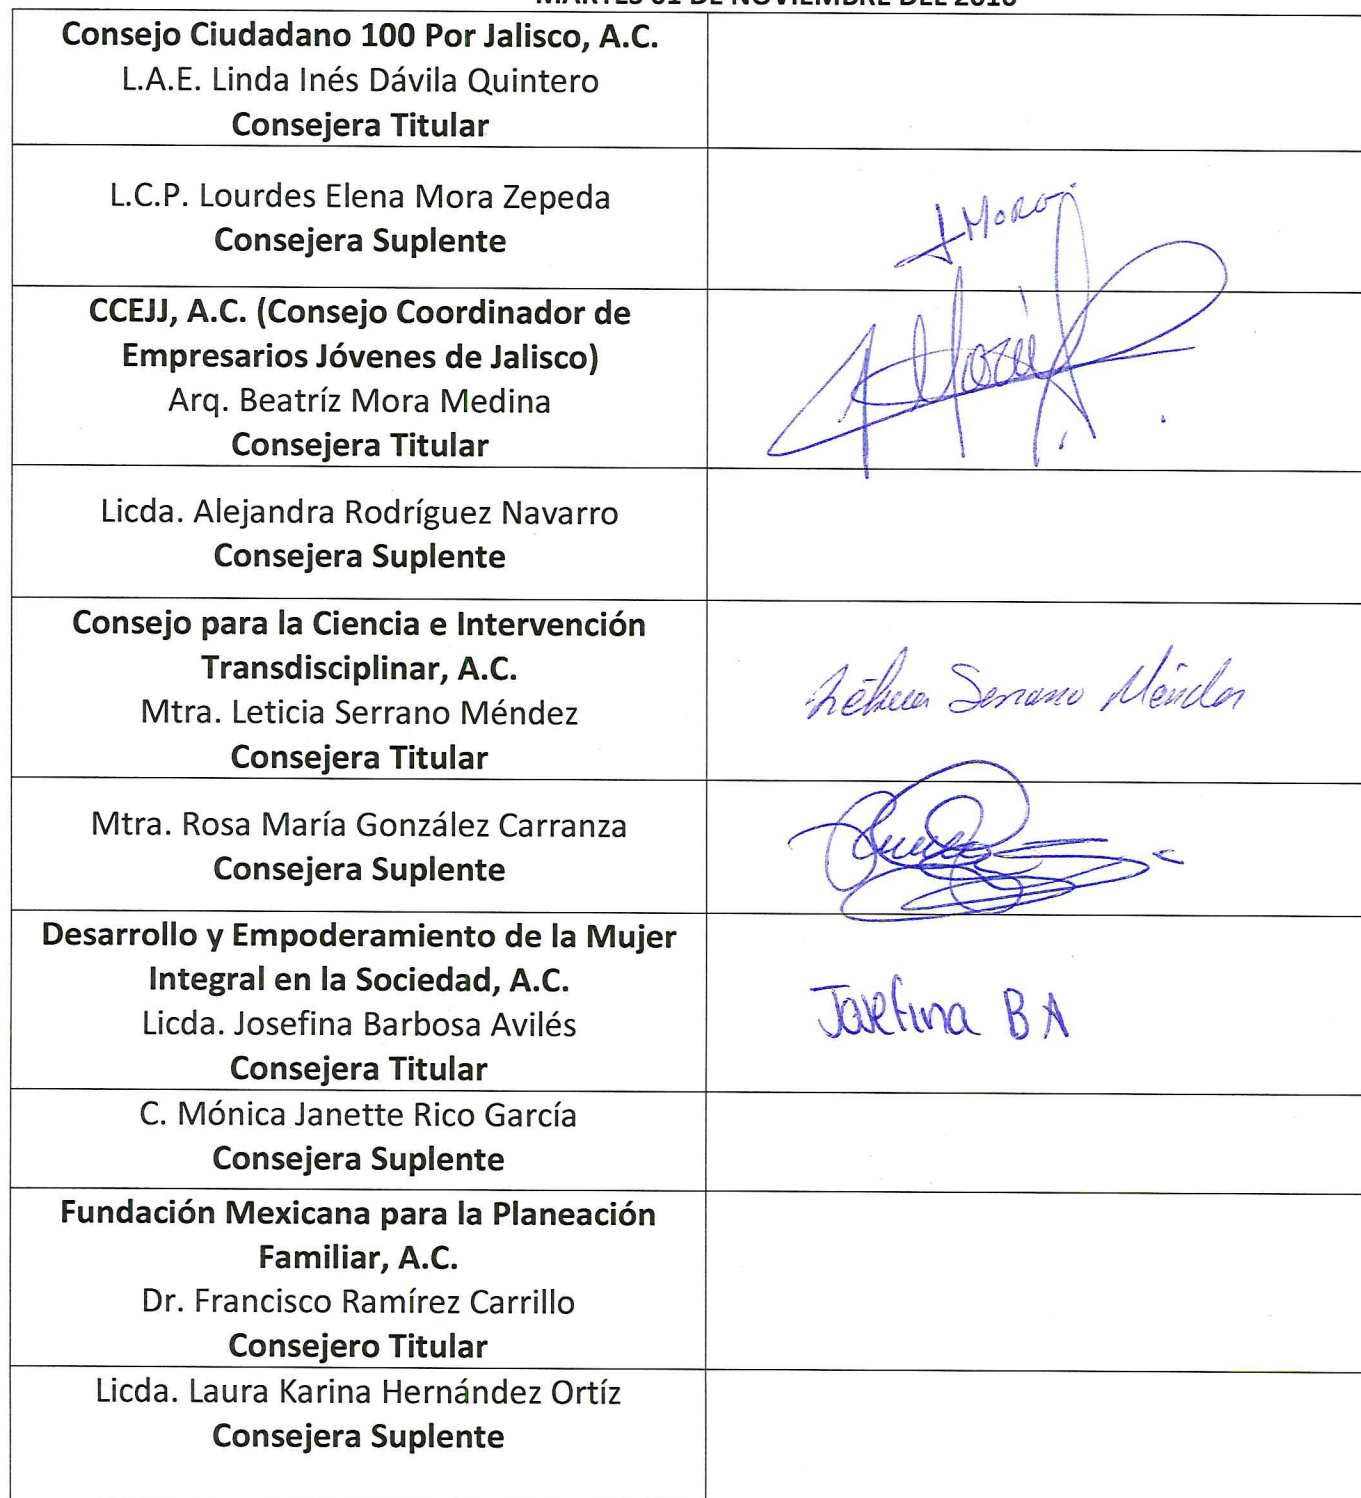 MARTES 01 DE NOVIEMBRE DEL 2016
Consejo Ciudadano 100 Por Jalisco, A.C.
L.A.E. Linda Inés Dávila Quintero
Consejera Titular
L.C.P. Lourdes Elena Mora Zepeda
Consejera Suplente
CCEJJ, A.C. (Consejo Coordinador de
Empresarios Jóvenes de Jalisco)
Arq. Beatríz Mora Medina
Consejera Titular
Licda. Alejandra Rodríguez Navarro
Consejera Suplente
Consejo para la Ciencia e Intervención
Transdisciplinar, A.C.
Mtra. Leticia Serrano Méndez
Consejera Titular
Serrano Méndez
Mtra. Rosa María González Carranza
Consejera Suplente
Desarrollo y Empoderamiento de la Mujer
Integral en la Sociedad, A.C.
Licda. Josefina Barbosa Avilés
Consejera Titular
Josefina B A
C. Mónica Janette Rico García
Consejera Suplente
Fundación Mexicana para la Planeación
Familiar, A.C.
Dr. Francisco Ramírez Carrillo
Consejero Titular
Licda. Laura Karina Hernández Ortíz
Consejera Suplente